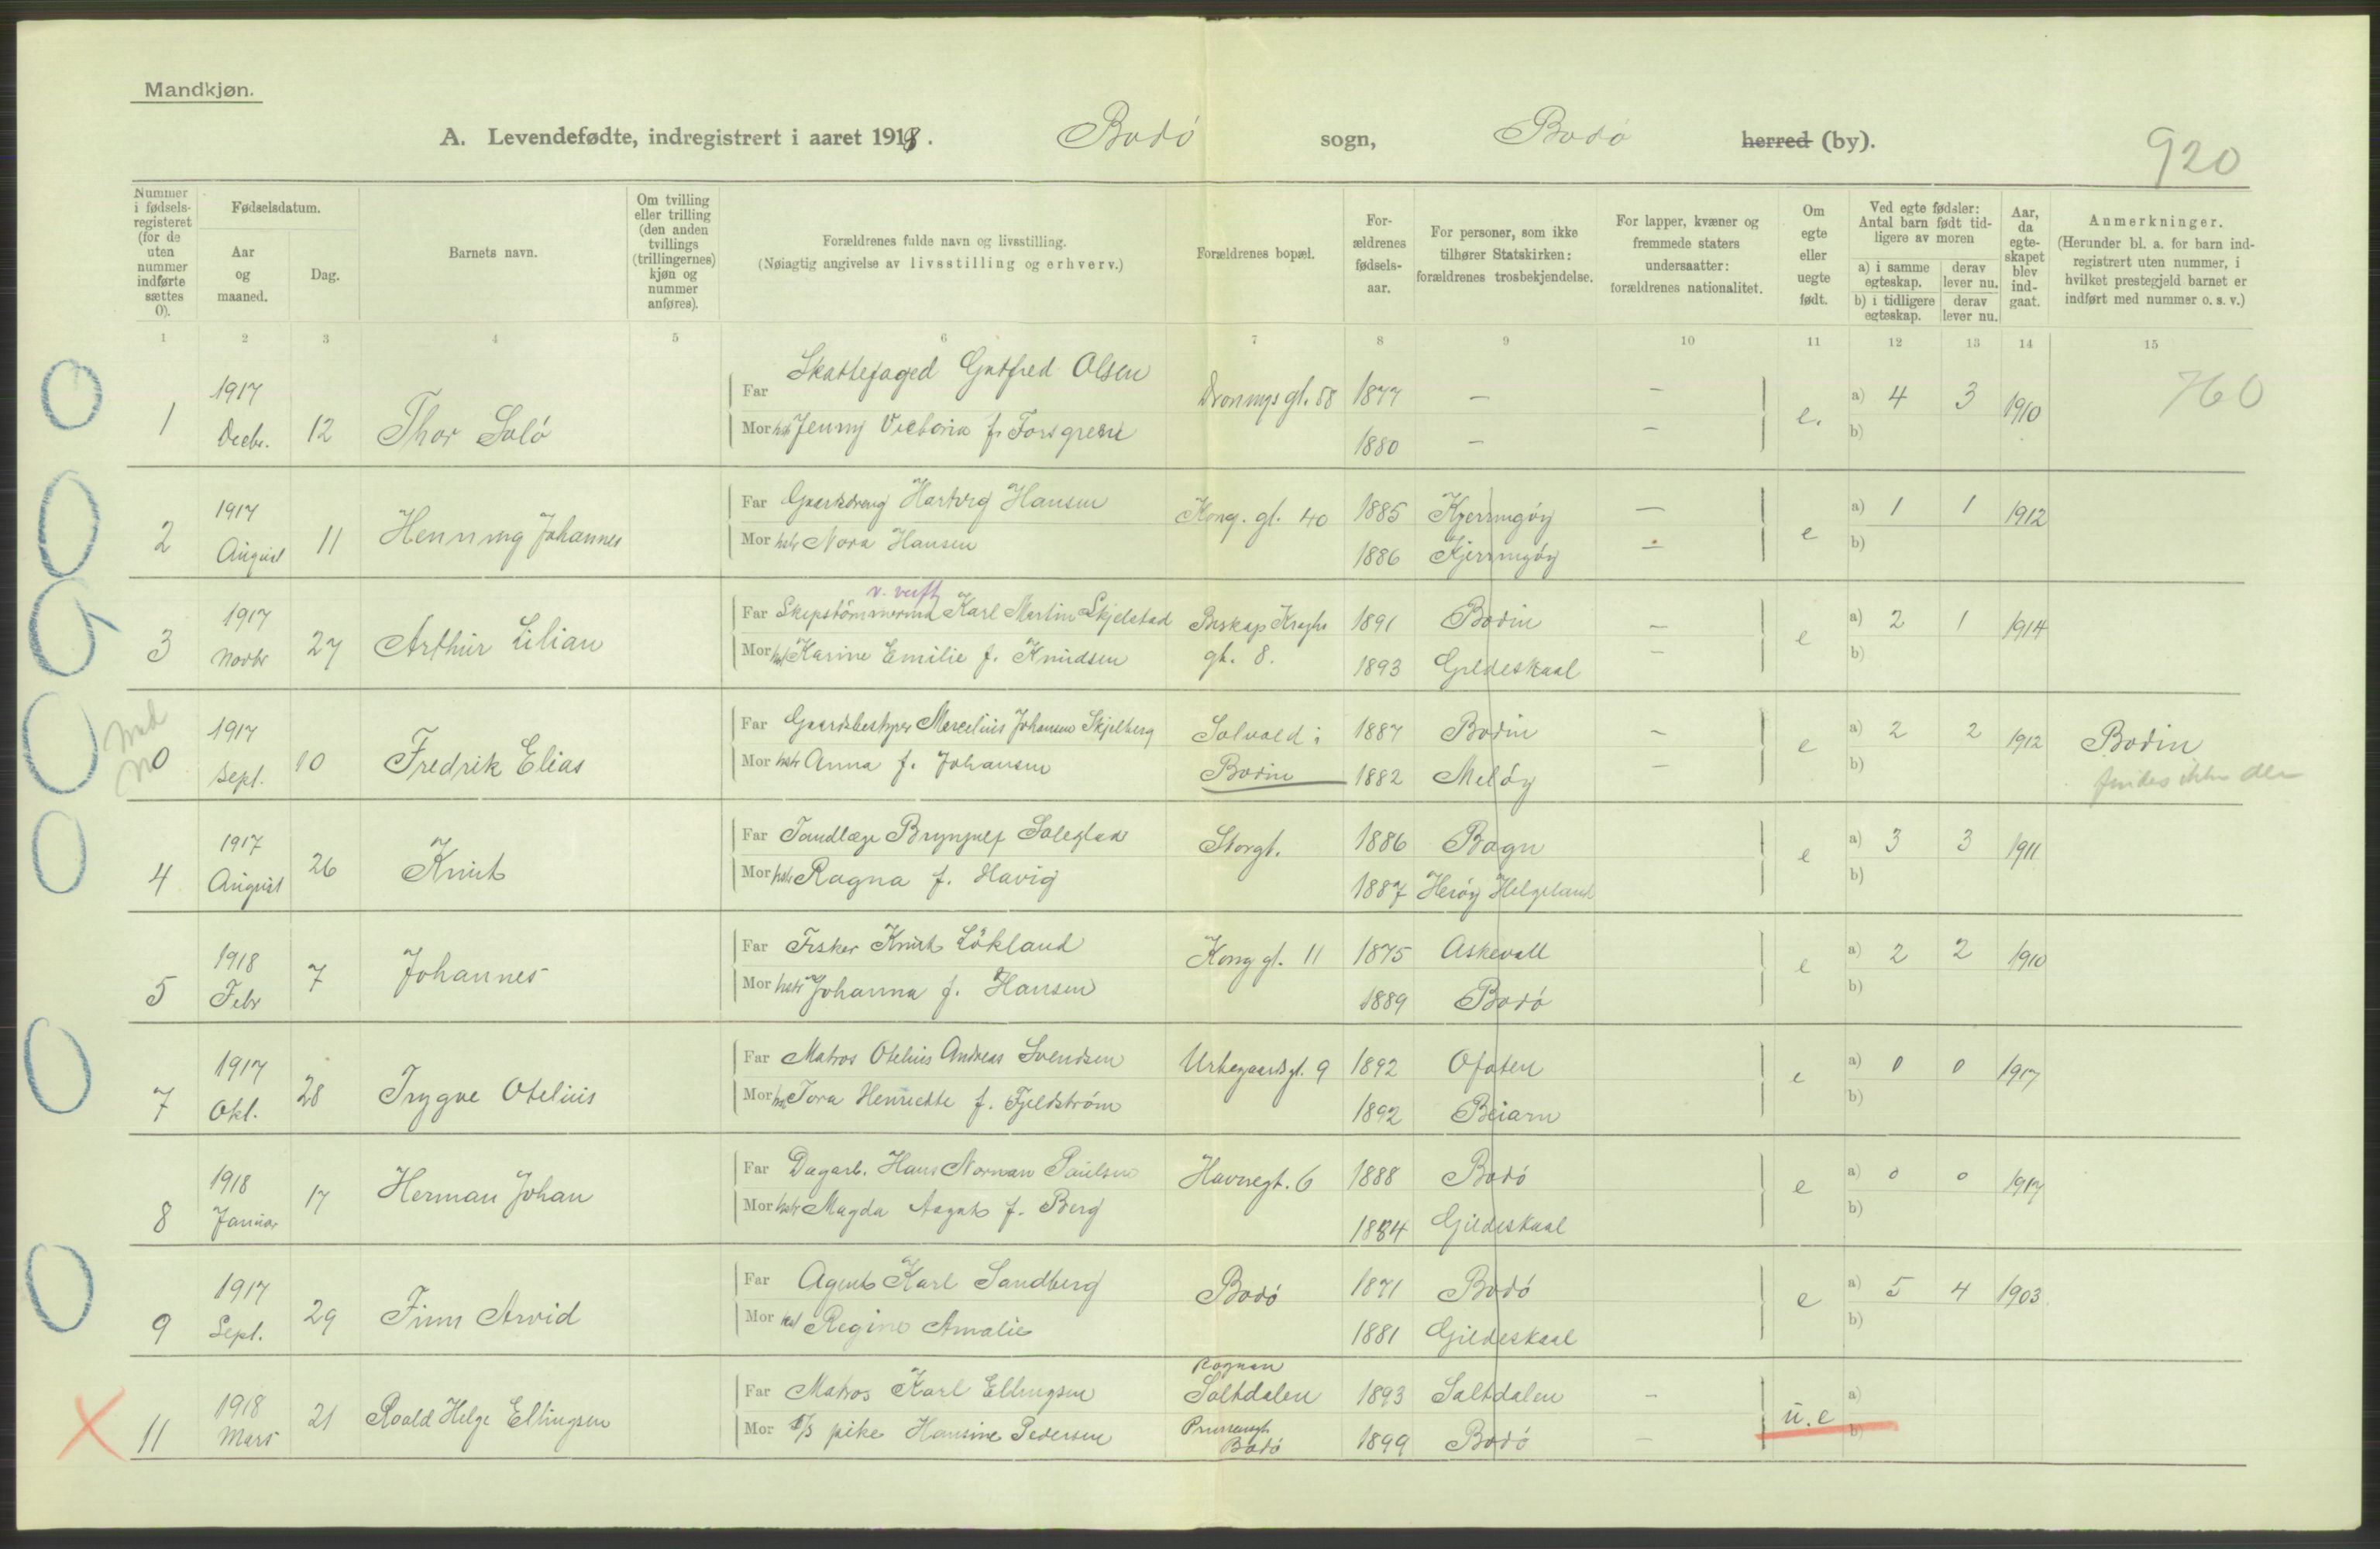 Mandkjøn.
A. Levendefødte, indregistrert i aaret 1918. Bodø sogn, Bodø herred (by).
920
Nummer i fødselsregisteret (for de uten nummer indførte sættes 0).
Fødselsdatum.
Aar og maaned.
Dag.
Barnets navn.
Om tvilling eller trilling (den anden tvillings (trillingernes) kjøn og nummer anføres).
Forældrenes fulde navn og livsstilling.
(Nøiagtig angivelse av livsstilling og erhverv.)
Forældrenes bopæl.
Forældrenes fødselsaar.
For personer, som ikke tilhører Statskirken: forældrenes trosbekjendelse.
For lapper, kvæner og fremmede staters undersaatter: forældrenes nationalitet.
Om egte eller uegte født.
Ved egte fødsler: Antal barn født tidligere av moren
a) i samme egteskap. derav lever nu.
b) i tidligere egteskap. derav lever nu.
Aar, da egteskapet blev indgaat.
Anmerkninger.
(Herunder bl. a. for barn indregistrert uten nummer, i hvilket prestegjeld barnet er indført med nummer o. s. v.)
1 2 3 4 5 6 7 8 9 10 11 12 13 14 15
0 1 1917 Decbr. 12 Thor Solø
Far Skattefoged Gutfred Olsen Dronnigs gt. 58 1877 — — e. a) 4 3 1910 760
Mor hstr Jenny Victoria f. Forsgren 1880 — — b)
0 2 1917 August 11 Henning Johannes
Far Gaardsdreng Hartvig Hansen Kong. gt. 40 1885 Kjerringøy — e a) 1 1 1912
Mor hstr Nora Hansen 1886 Kjerringøy — b)
3 1917 Novbr 27 Arthur Lilian
v. verft
Far Skipstømmermd Karl Martin Skjelstad Biskop Kroghs 1891 Bodin — e a) 2 1 1914
Mor hst Karine Emilie f. Knudsen gt. 8. 1893 Gildeskaal — b)
0 0 1917 Sept. 10 Fredrik Elias
Far Gaardsbestyrer Marcelius Johansen Skjelberg Solvold i 1887 Bodin — e a) 2 2 1912 Bodin
Mor hstr Anna f. Johansen Bodin 1882 Meløy — b) findes ikke der
0 4 1917 August 26 Knut
Far Tandlæge Brynjulf Soleglad Storgt. 1886 Bagn e a) 3 3 1911
Mor hstr Ragna f. Havig 1887 Herøy Helgeland b)
5 1918 Febr 7 Johannes
Far Fisker Knut Løkland Kong gt. 11 1875 Askevoll e a) 2 2 1910
Mor hstr Johanna f. Hansen 1889 Bodø b)
0 7 1917 Okt. 28 Trygve Otelius
Far Matros Otelius Andreas Svendsen Urtegaardsgt. 9 1892 Ofoten e a) 0 0 1917
Mor hst Tora Henriette f. Fjeldstrøm 1892 Beiarn b)
8 1918 Januar 17 Herman Johan
Far Dagarb. Hans Norman Paulsen Havnegt. 6 1888 Bodø e a) 0 0 1917
Mor hstr Magda Aagot f. Berg 1884 Gildeskaal b)
0 9 1917 Sept. 29 Finn Arvid
Far Agent Karl Sandberg Bodø 1871 Bodø e a) 5 4 1903
Mor hst Regine Amalie 1881 Gildeskaal b)
X 11 1918 Mars 21 Roald Helge Ellingsen
Rognan
Far Matros Karl Ellingsen Saltdalen 1893 Saltdalen — u. e a)
Mor pike Hansine Pedersen Bodø 1899 Bodø — b)